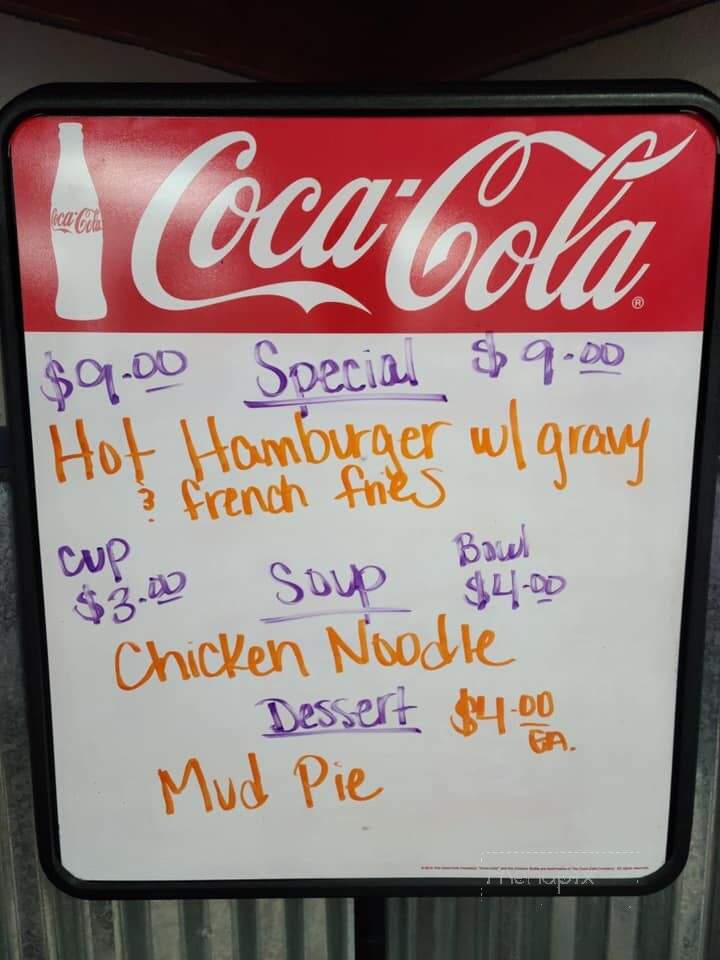 Coca-Cola
Coca-Cola®
$9.00 Special $9.00
Hot Hamburger w/ gravy
& french fries
Cup Bowl
$3.00 Soup $4.00
Chicken Noodle
Dessert $4.00
EA.
Mud Pie
menupix